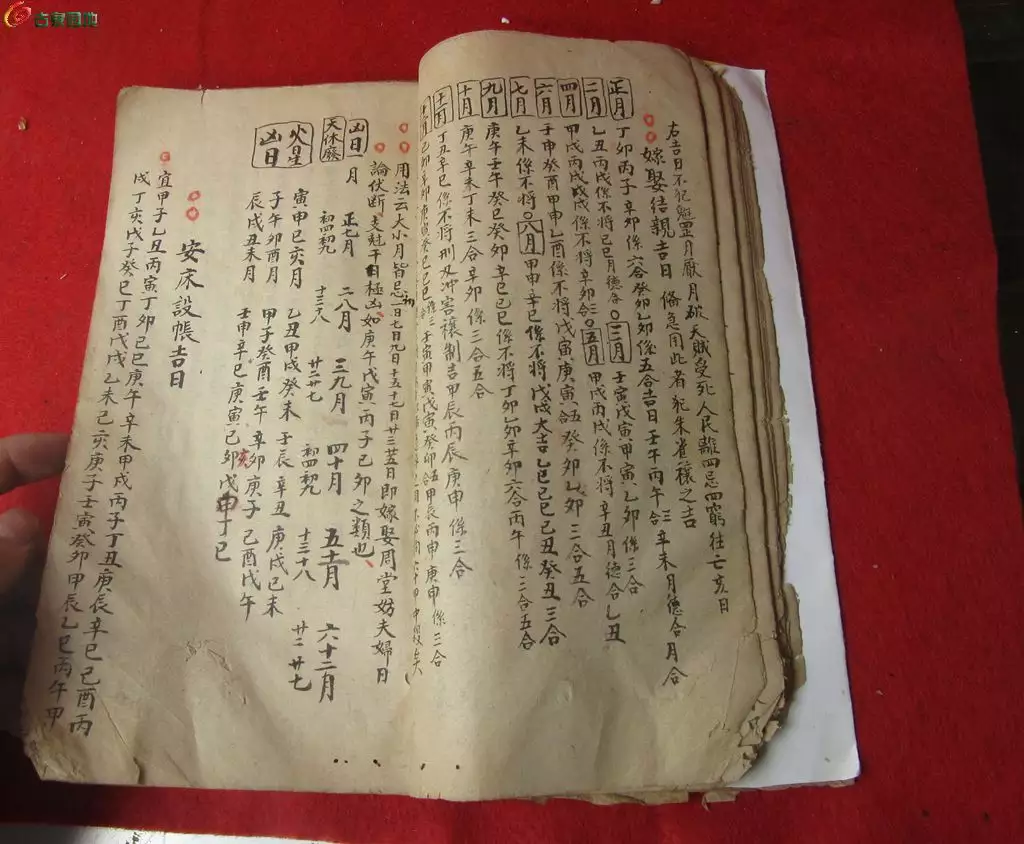 右吉日不犯魁罡月厭月破天賊受死人民離四忌四窮往亡亥日
嫁娶結親吉日 俻急用此者 犯朱雀禳之吉
正月 丁卯丙子辛卯係六合癸卯乙卯係五合吉日壬午丙午三合辛未月德合月合
二月 乙丑丙戌係不將己巳月德合○三月 壬寅戊寅甲寅乙卯係三合
四月 甲戌丙戌戊戌係不將辛卯合○五月 甲戌丙戌戊戌係不將辛丑月德合乙丑
六月 壬申癸酉甲申乙酉係不將戊寅庚寅五合癸卯乙卯三合五合
七月 乙未係不將○八月 甲申辛巳係不將戊戌大吉乙巳己巳己丑癸丑三合
九月 庚午壬午癸巳癸卯辛巳己巳係不將丁卯乙卯辛卯六合丙午係三合五合
十月 庚午辛未丁未三合辛卯係三合五合
十一月 丁丑辛巳係不將刑及冲害禳制吉甲辰丙辰庚申係三合
壬寅甲寅戊寅癸卯五合甲辰丙申庚申係三合
用法云大小月皆忌初一日七日九日十五十七日廿三廿五日即嫁娶周堂妨夫婦日
論伏断支尅干日極凶如庚午戊寅丙子己卯之類也
凶日一月
天休廢 正七月 二八月 三九月 四十月 五十一月 六十二月
初四初九 十三十八 廿二廿七 初四初九 十三十八 廿二廿七
火星凶日 寅申巳亥月 乙丑甲戌癸未壬辰辛丑庚戌己未
子午卯酉月 甲子癸酉壬午辛卯庚子己酉戊午
辰戌丑未月 壬申辛巳庚寅己亥戊申丁巳
安床設帳吉日
宜甲子乙丑丙寅丁卯己巳庚午辛未甲戌丙子丁丑庚辰辛巳己酉丙
戌丁亥戊子癸巳丁酉戊戌乙未己亥庚子壬寅癸卯甲辰乙巳丙午甲
古泉园地